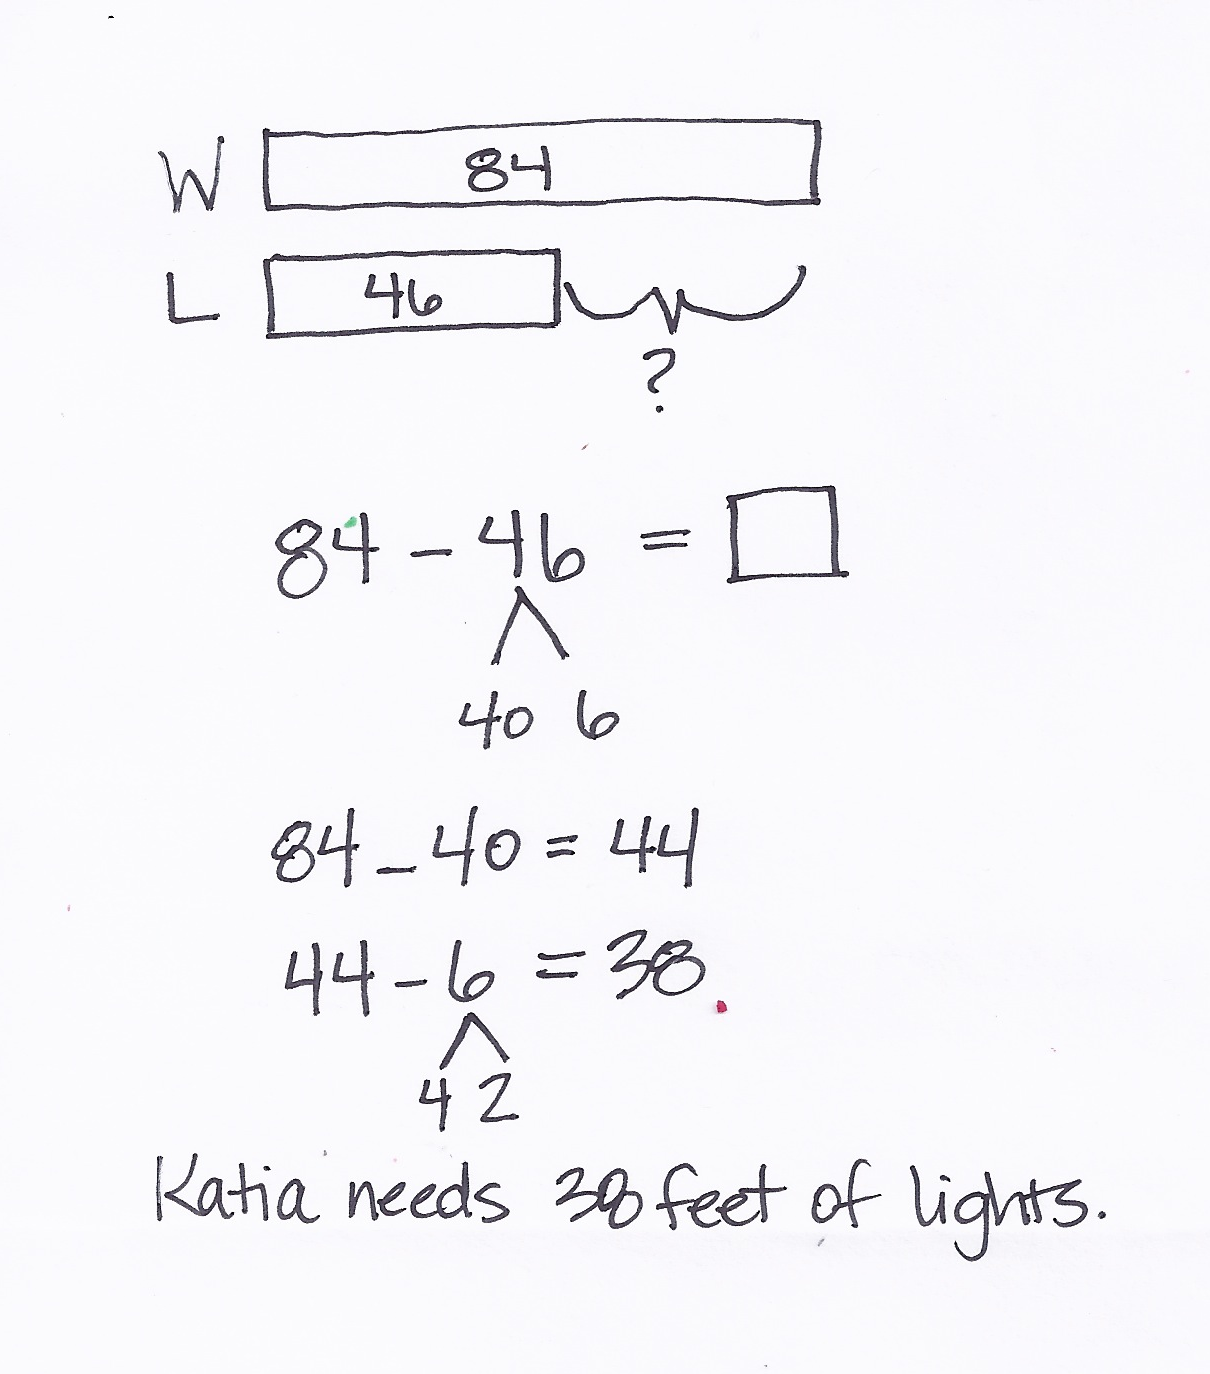 W 84
L 46
?
84 - 46 = □
40 6
84 - 40 = 44
44 - 6 = 38
4 2
Katia needs 38 feet of lights.